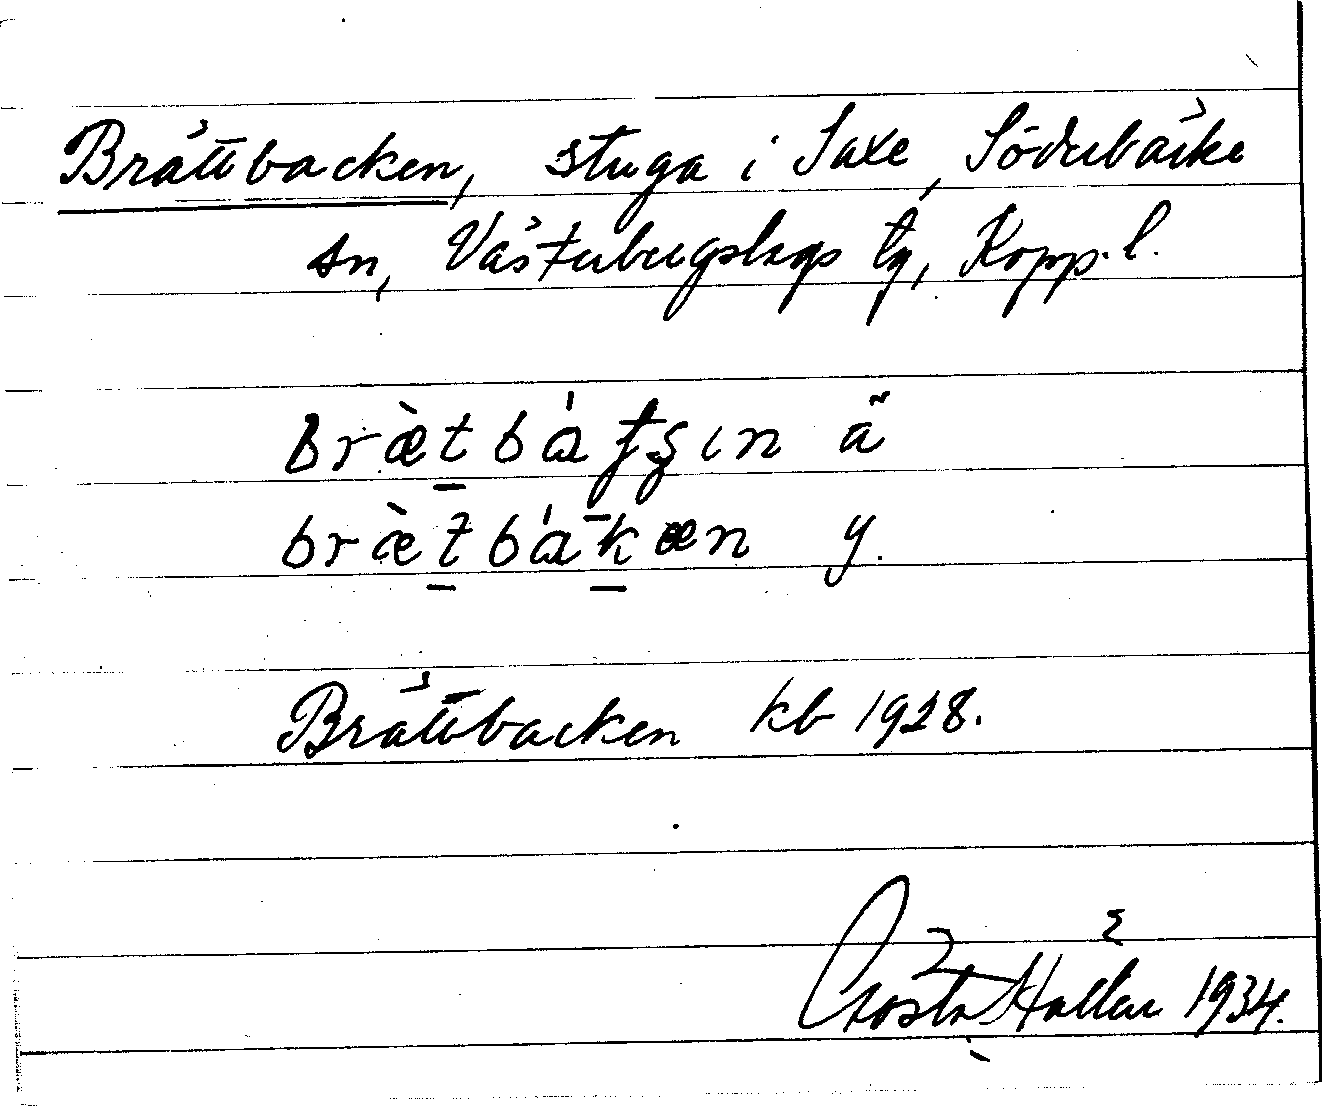 Brättbacken, stuga i Saxe, Söderbärke
sn, Västerbergslags tg, Kopp. l.
bræ̀t̲bá ın ä
bræ̀t̲bák̲æn y.
Brättbacken kb 1928.
Gösta Hallen 1934.